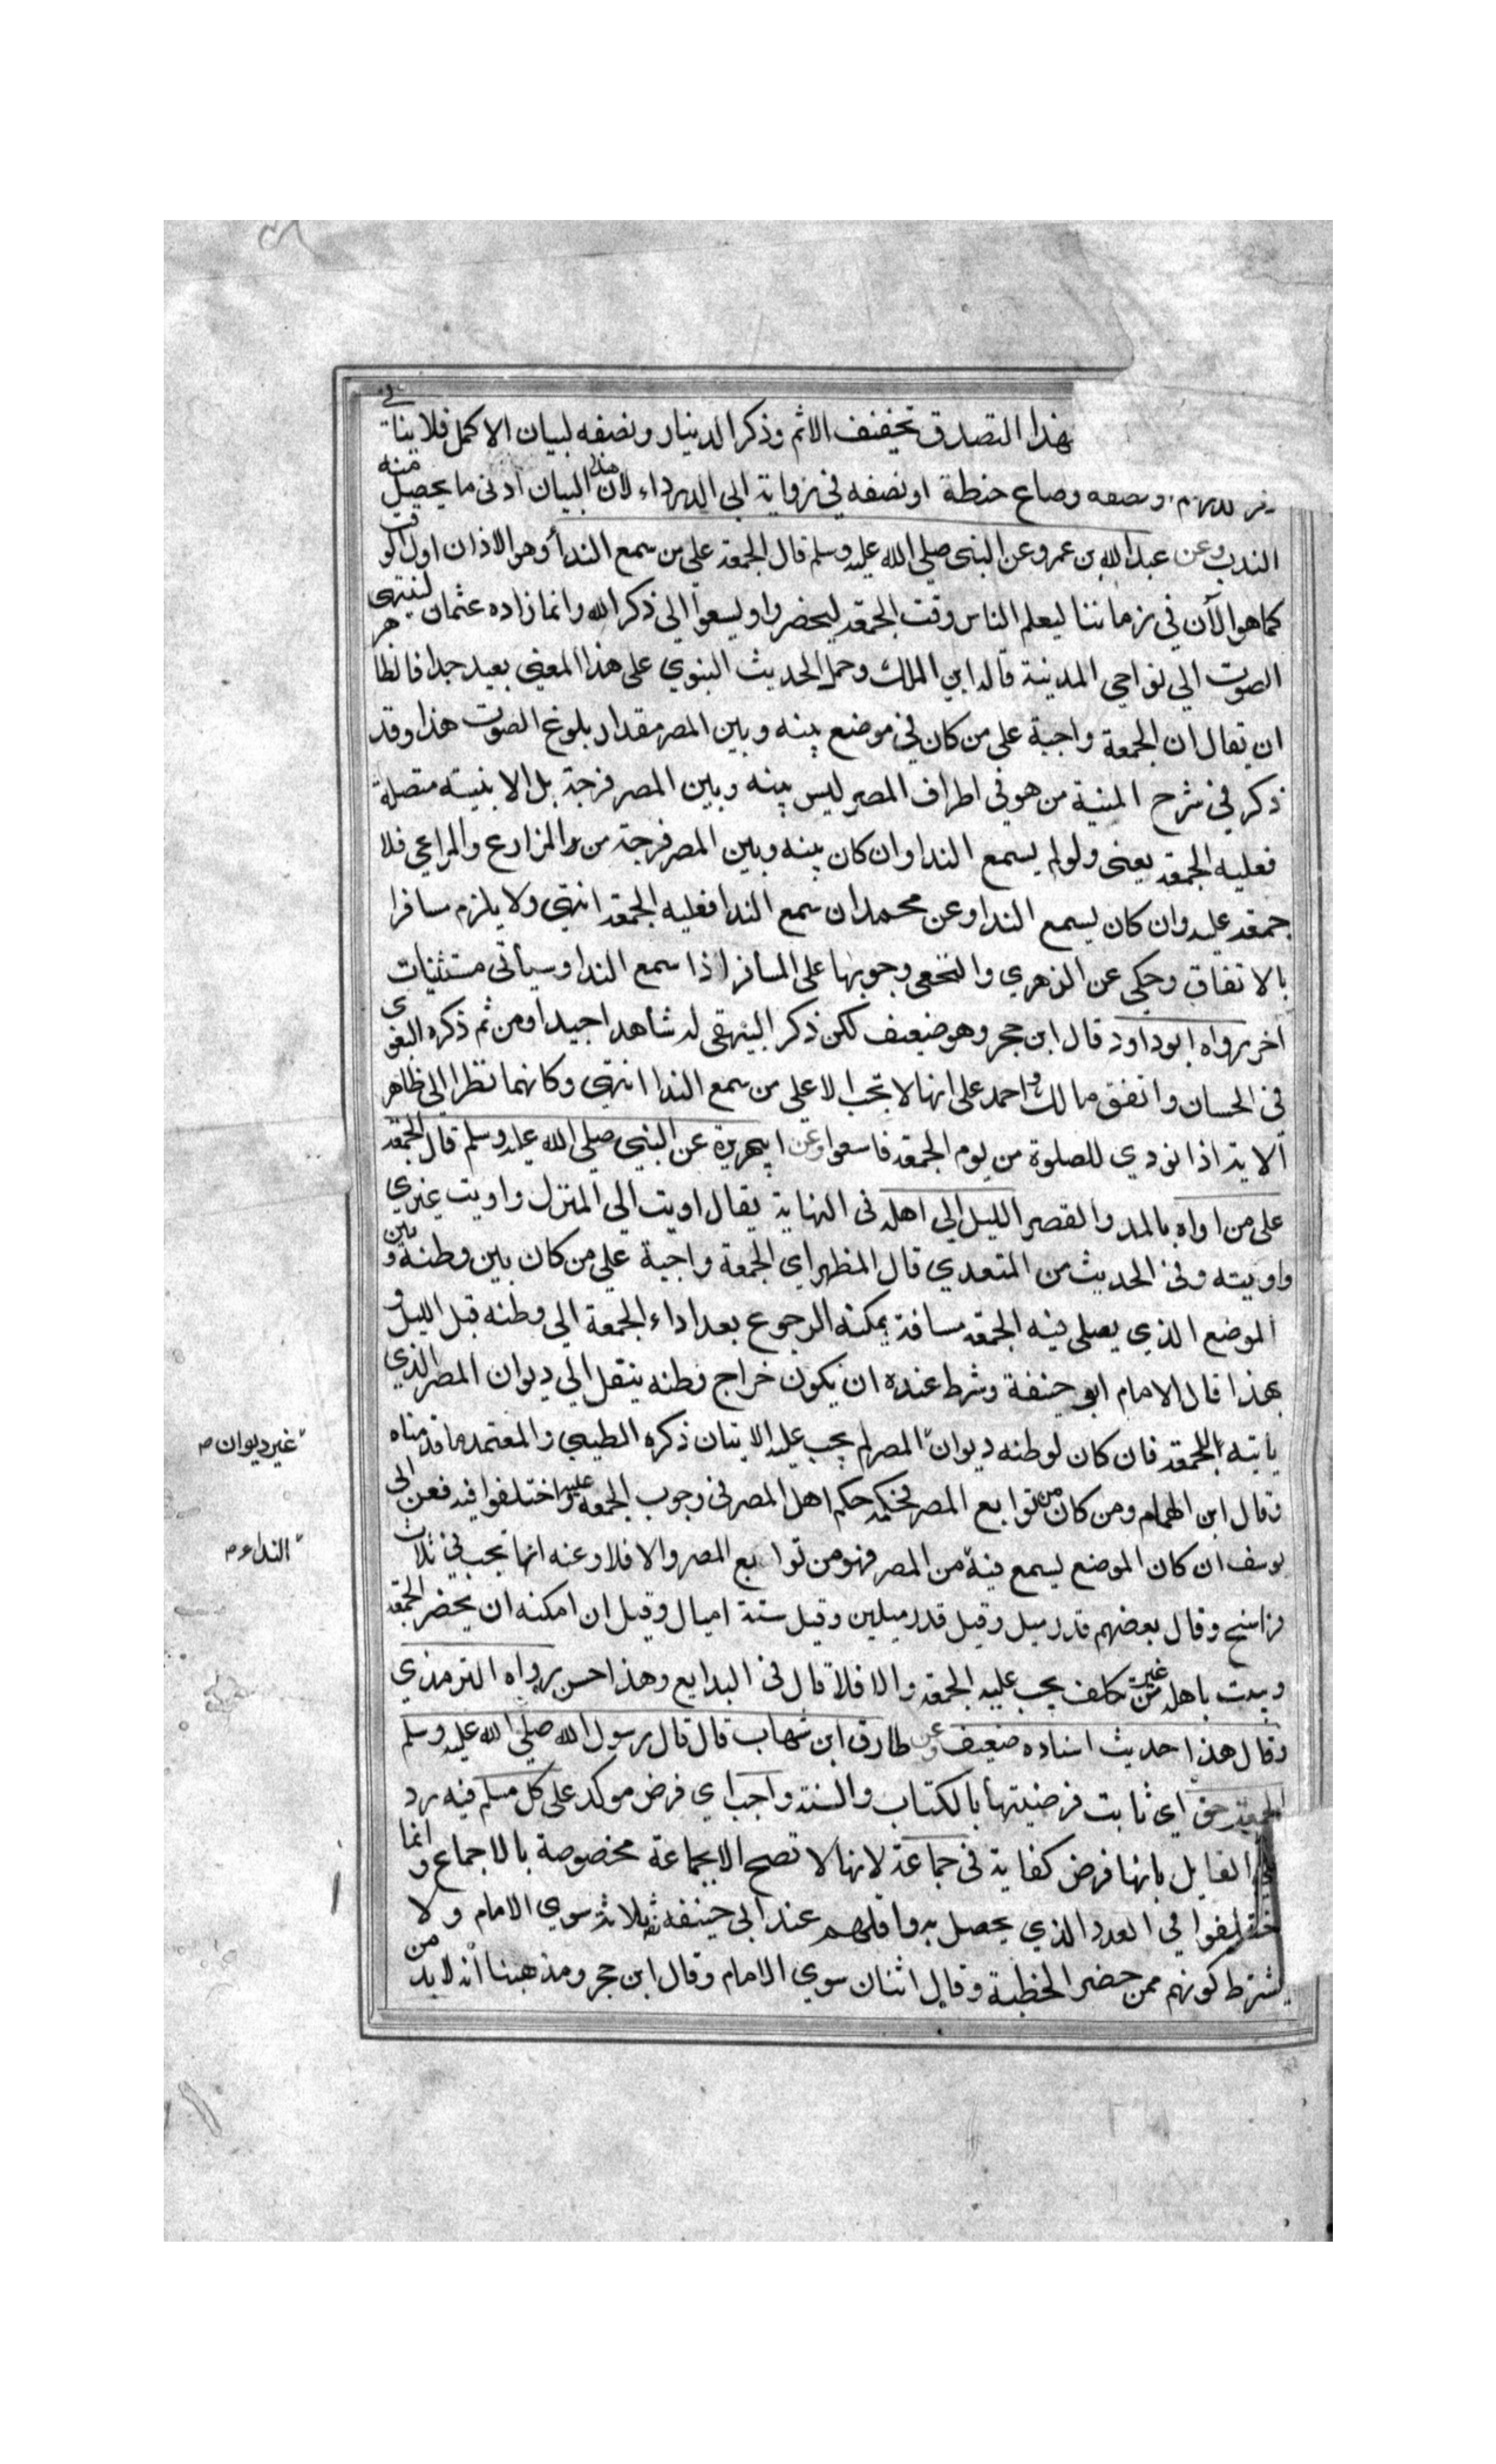 بهذا التصدق تخفيف الاثم وذكر الدينار ونصفه لبيان الاكمل فلا ينافي
ذكر الدرهم ونصفه وصاع حنطة او نصفه في رواية ابي الدرداء لان هذا البيان ادنى ما يحصل منه
الندب وعن عبد الله بن عمرو عن النبي صلي الله عليه وسلم قال الجمعة علي من سمع النداء وهو الاذان اول الوقت
كما هو الآن في زماننا ليعلم الناس وقت الجمعة ليحضروا ويسعوا الي ذكر الله وانما زاده عثمان لينتهي
الصوت الي نواحي المدينة قاله ابن الملك وحمل الحديث النبوي على هذا المعني بعيد جدا فالظاهر
ان يقال ان الجمعة واجبة علي من كان في موضع بينه وبين المصر مقدار بلوغ الصوت هذا وقد
ذكر في شرح المنية من هو في اطراف المصر ليس بينه وبين المصر فرجة بل الابنيته متصلة
فعليه الجمعة يعني ولو لم يسمع الندا وان كان بينه وبين المصر فرجة من المزارع والمراعي فلا
جمعة عليه وان كان يسمع الندا وعن محمد ان سمع الندا فعليه الجمعة انتهي ولا يلزم مسافرا
بالاتفاق وحكي عن الزهري والنخعي وجوبها على المسافر اذا سمع الندا وسيأتي مستثنيات
اخر رواه ابو داود قال ابن حجر وهو ضعيف لكن ذكر البيهقي له شاهدا جيدا ومن ثم ذكره البغوي
في الحسان واتفق مالك واحمد على انها لا تجب الا على من سمع الندا انتهي وكانهما نظرا الي ظاهر
الاية اذا نودي للصلوة من يوم الجمعة فاسعوا وعن ابي هريرة عن النبي صلي الله عليه وسلم قال الجمعة
على من اواه بالمد والقصر الليل الي اهله في النهاية يقال اويت الي المنزل واويت غيري
واويته وفي الحديث من المتعدي قال المظهر اي الجمعة واجبة علي من كان بين وطنه وبين
الموضع الذي يصلي فيه الجمعة مسافة يمكنه الرجوع بعد اداء الجمعة الي وطنه قبل الليل و
بهذا قال الامام ابو حنيفة وشرط عنده ان يكون خراج وطنه ينقل الي ديوان المصر الذي
ياتيه للجمعة فان كان لوطنه ديوان المصر لم يجب عليه الاتيان ذكره الطيبي والمعتمد ما قدمناه
غير ديوان صح
وقال ابن الهمام ومن كان من توابع المصر فحكمه حكم اهل المصر في وجوب الجمعة عليه واختلفوا فيه فعن ابي
يوسف ان كان الموضع يسمع فيه من المصر فهو من توابع المصر والا فلا وعنه انها تجب في ثلاث
النداء صح
فراسخ وقال بعضهم قدر ميل وقيل قدر ميلين وقيل ستة اميال وقيل ان امكنه ان يحضر الجمعة
ويبيت باهله من غير تكلف يجب عليه الجمعة والا فلا قال في البدايع وهذا حسن رواه الترمذي
وقال هذا حديث اسناده ضعيف وعن طارق ابن شهاب قال قال رسول الله صلي الله عليه وسلم
الجمعة حق اي ثابت فرضيتها بالكتاب والسنة واجب اي فرض موكد على كل مسلم فيه رد
علي القايل بانها فرض كفاية في جماعة لانها لا تصح الا بجماعة مخصوصة بالاجماع وانما
اختلفوا في العدد الذي يحصل به واقلهم عند ابي حنيفة ثلاثة سوي الامام ولا
يشترط كونهم ممن حضر الخطبة وقال اثنان سوي الامام وقال ابن حجر ومذهبنا انه لابد من